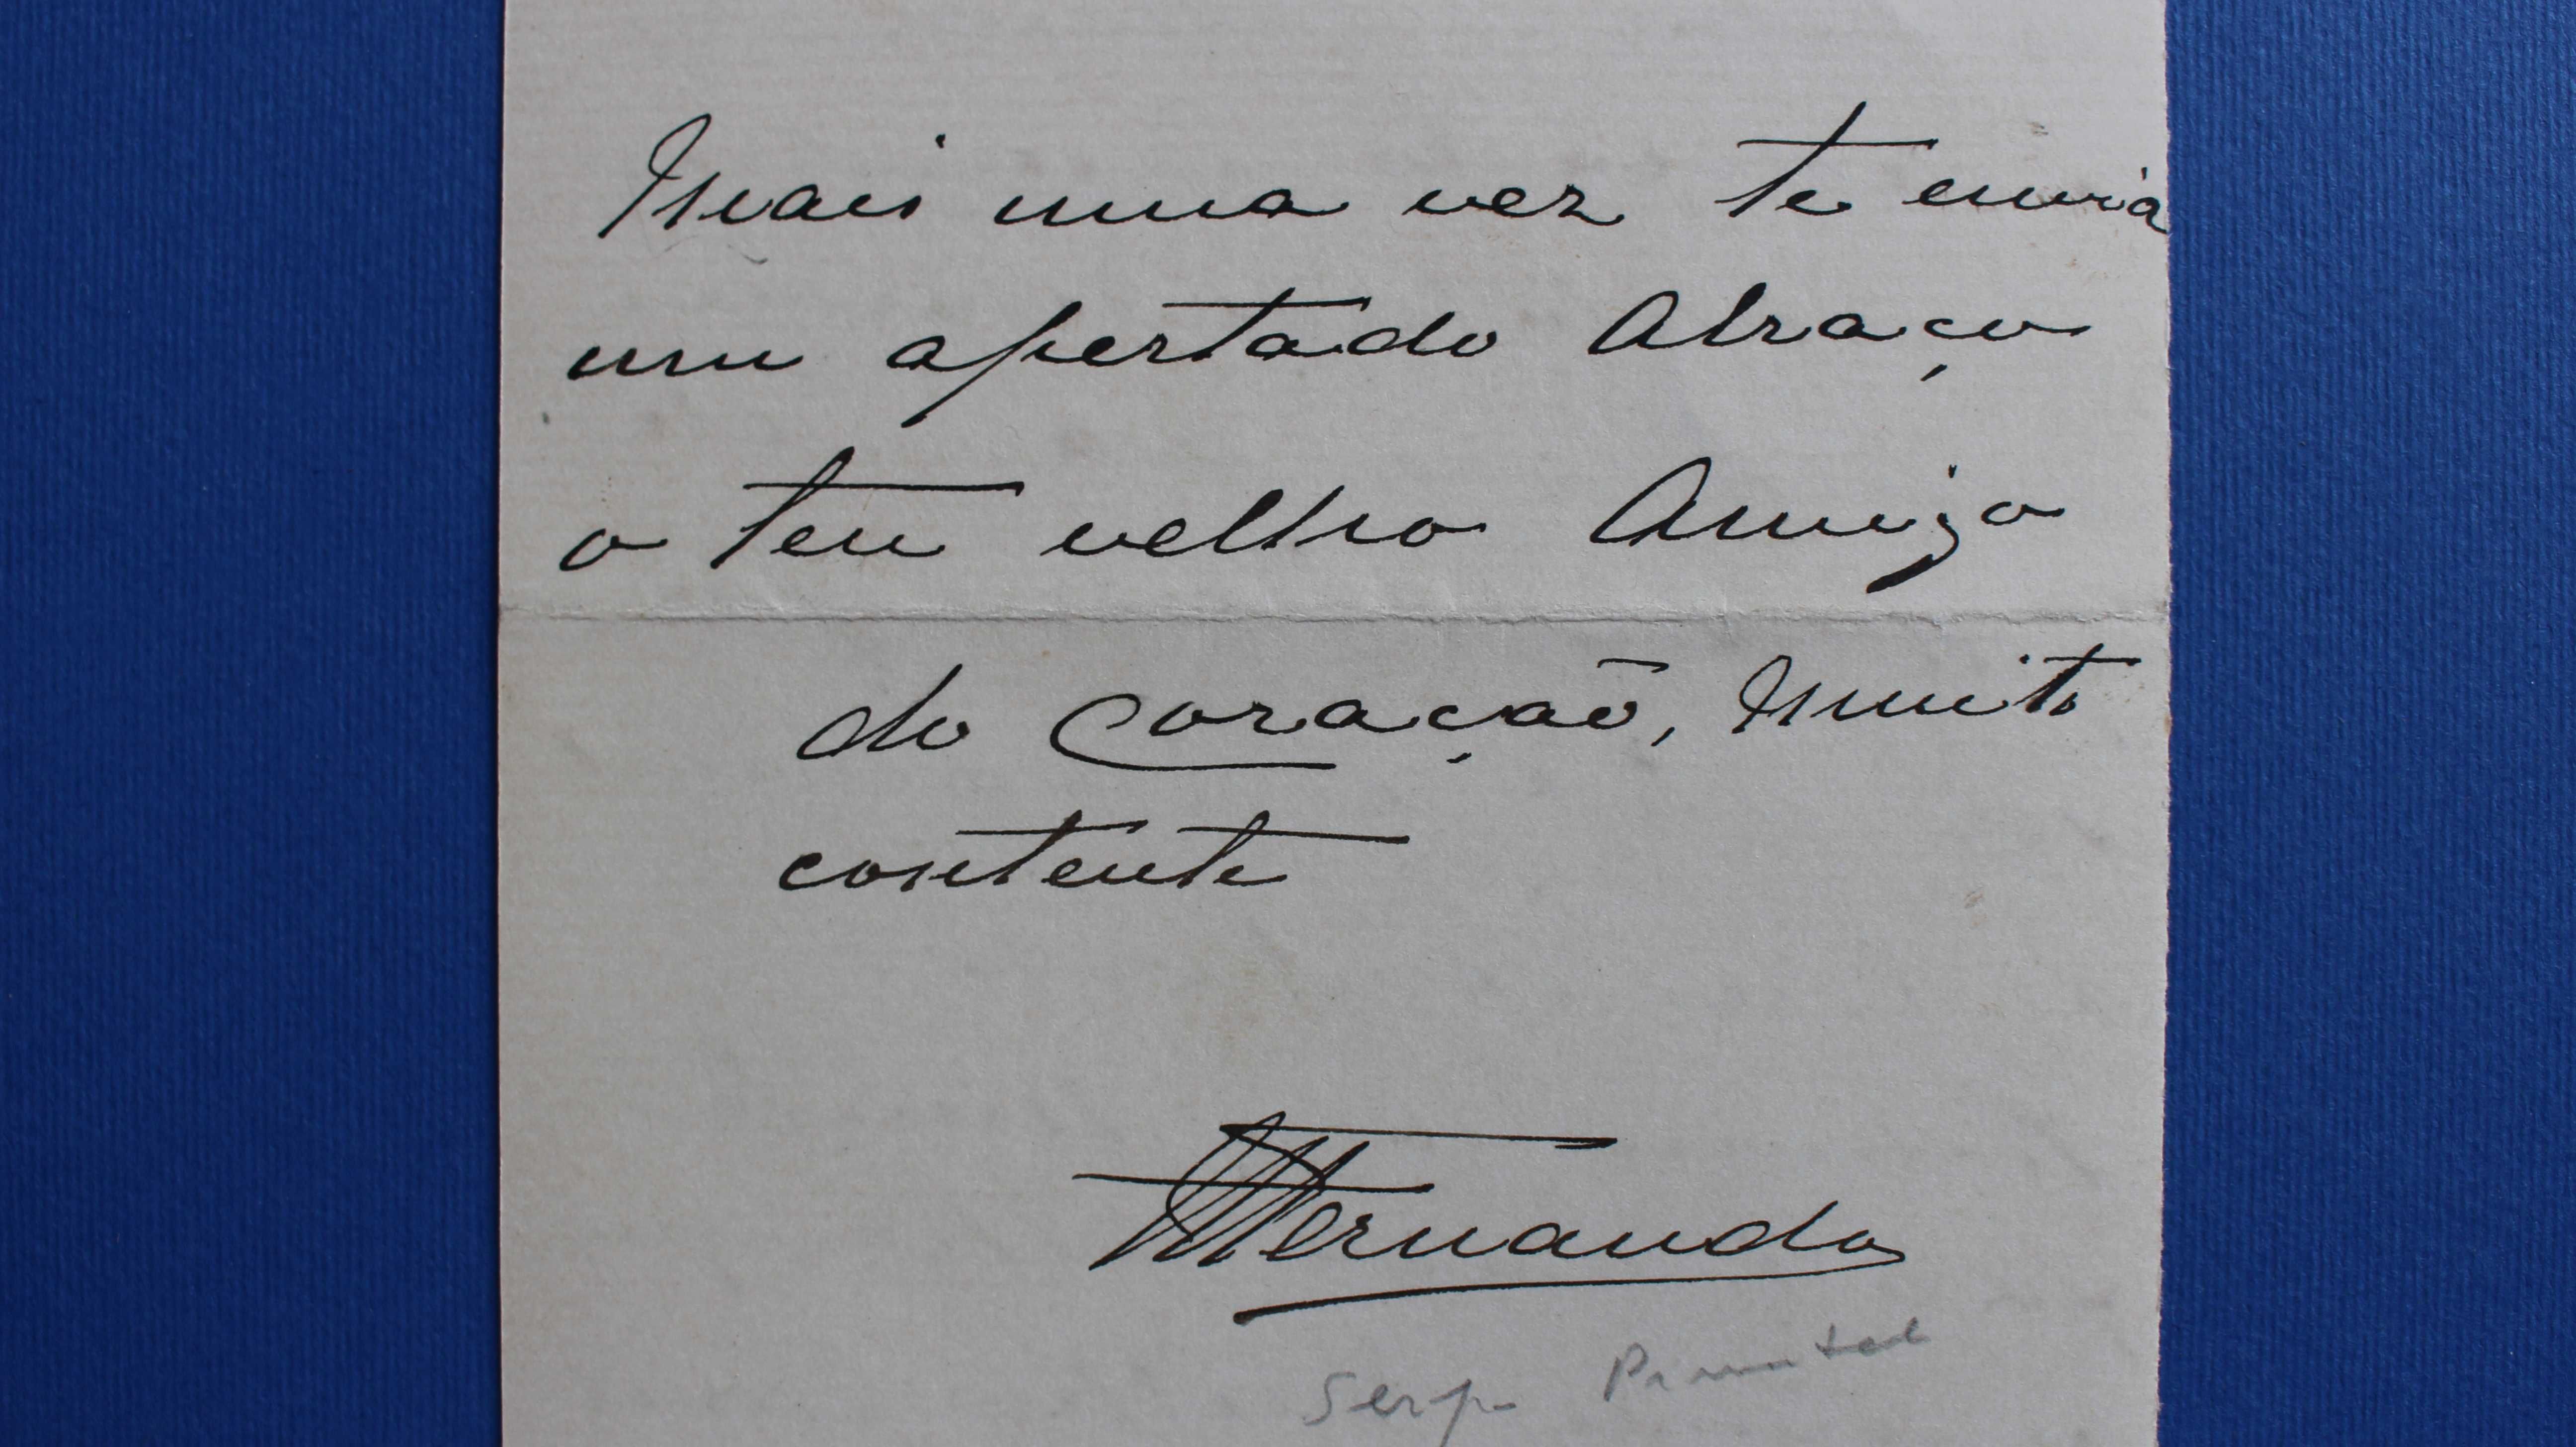 Mais uma vez te envia
um apertado Abraço
o teu velho Amigo
do Coração, Muito
contente
Fernando
Serpa Pimentel